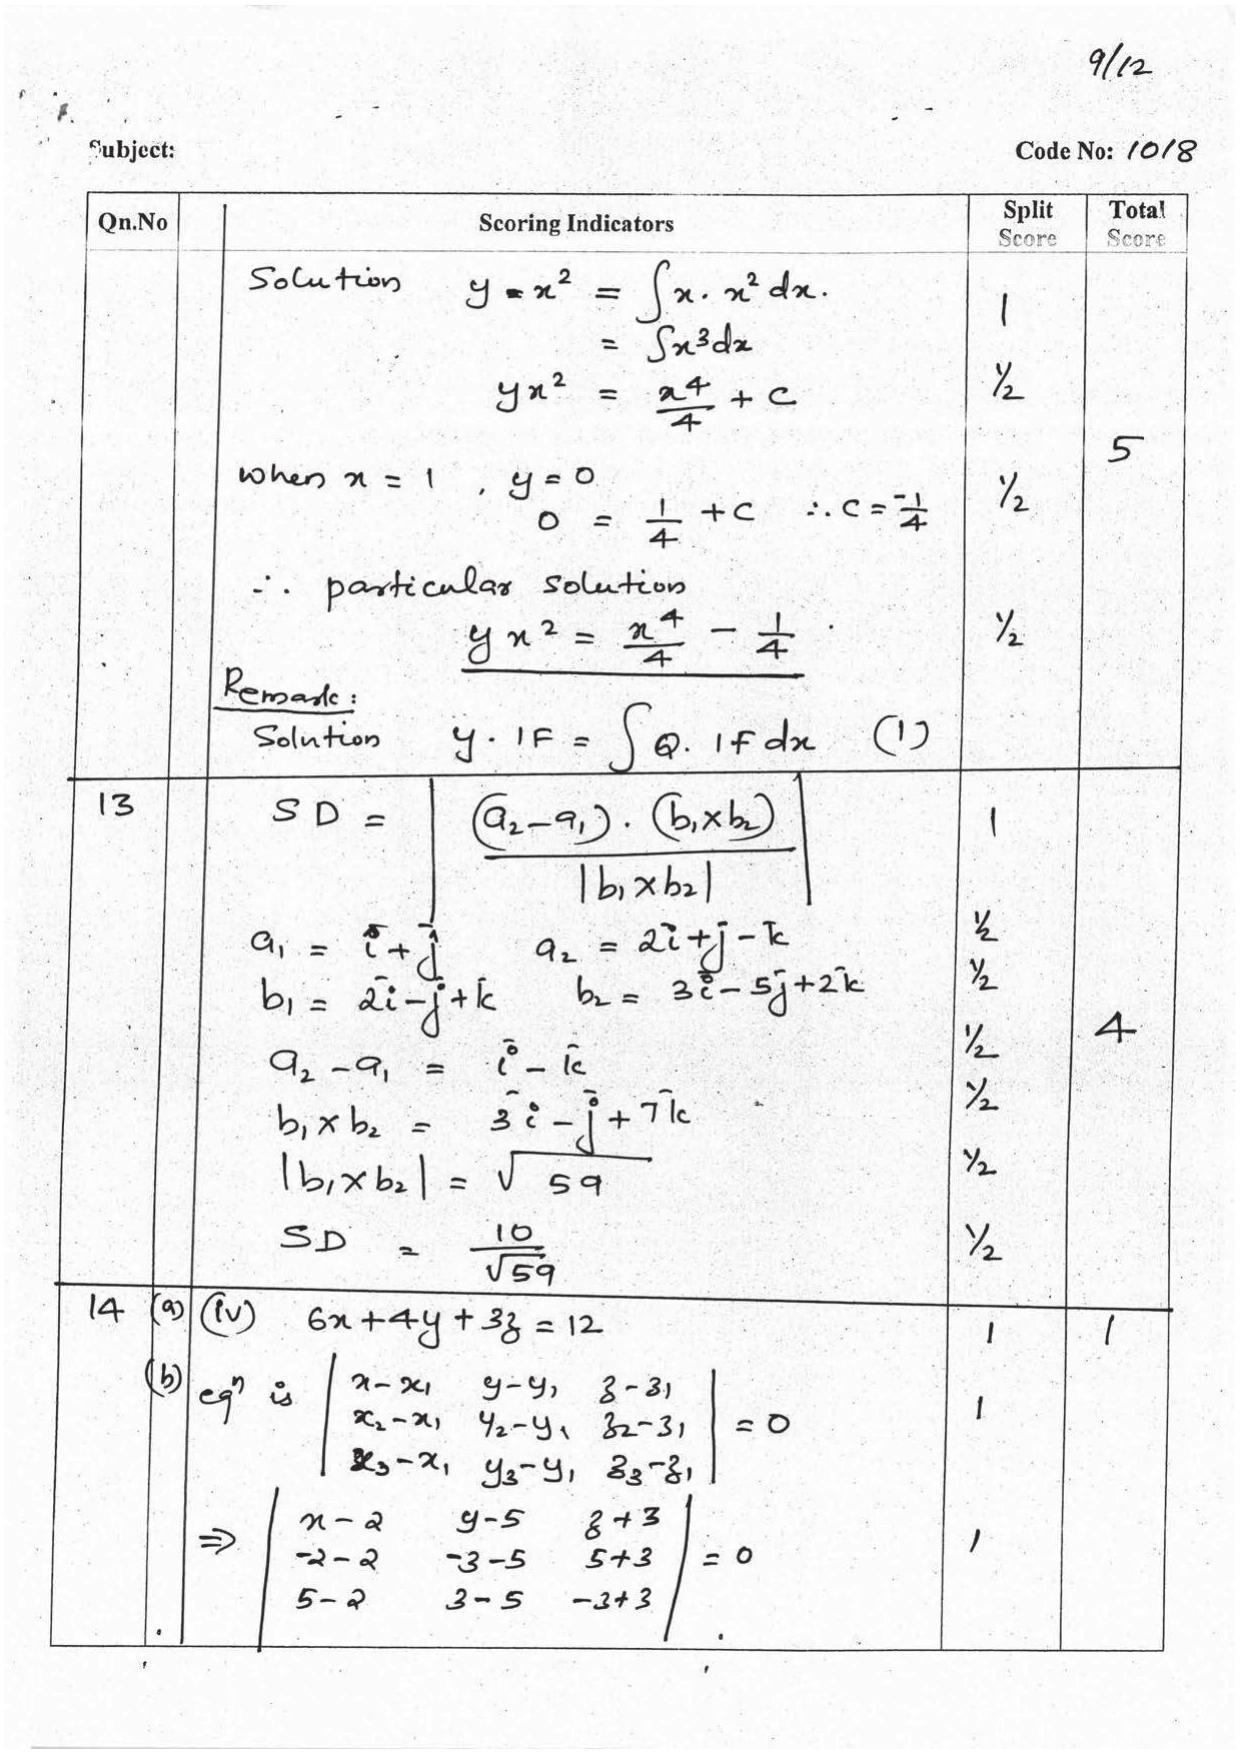 9/12
Subject:
Code No: 1018
Qn.No Scoring Indicators Split Score Total Score
Solution y · x² = ∫x. x² dx. 1
= ∫x³dx
yx² = x⁴/4 + C ½
5
when x = 1 , y = 0 ½
0 = 1/4 + C ∴ C = -1/4
∴ particular solution
yx² = x⁴/4 - 1/4 ½
Remark:
Solution y. IF = ∫Q. IF dx (1)
13 SD = | (a₂-a₁). (b₁×b₂) / |b₁×b₂| | 1
a₁ = i̅+j̅ a₂ = 2i̅+j̅-k̅ ½
b₁ = 2i̅-j̅+k̅ b₂ = 3i̅-5j̅+2k̅ ½
4
a₂-a₁ = i̅-k̅ ½
b₁×b₂ = 3i̅-j̅+7k̅ ½
|b₁×b₂| = √59 ½
SD = 10/√59 ½
14 (a) (iv) 6x+4y+3z = 12 1 1
(b) eqⁿ is | x-x₁ y-y₁ z-z₁ |
| x₂-x₁ y₂-y₁ z₂-z₁ | = 0 1
| x₃-x₁ y₃-y₁ z₃-z₁ |
⇒ | x-2 y-5 z+3 |
| -2-2 -3-5 5+3 | = 0 1
| 5-2 3-5 -3+3 |